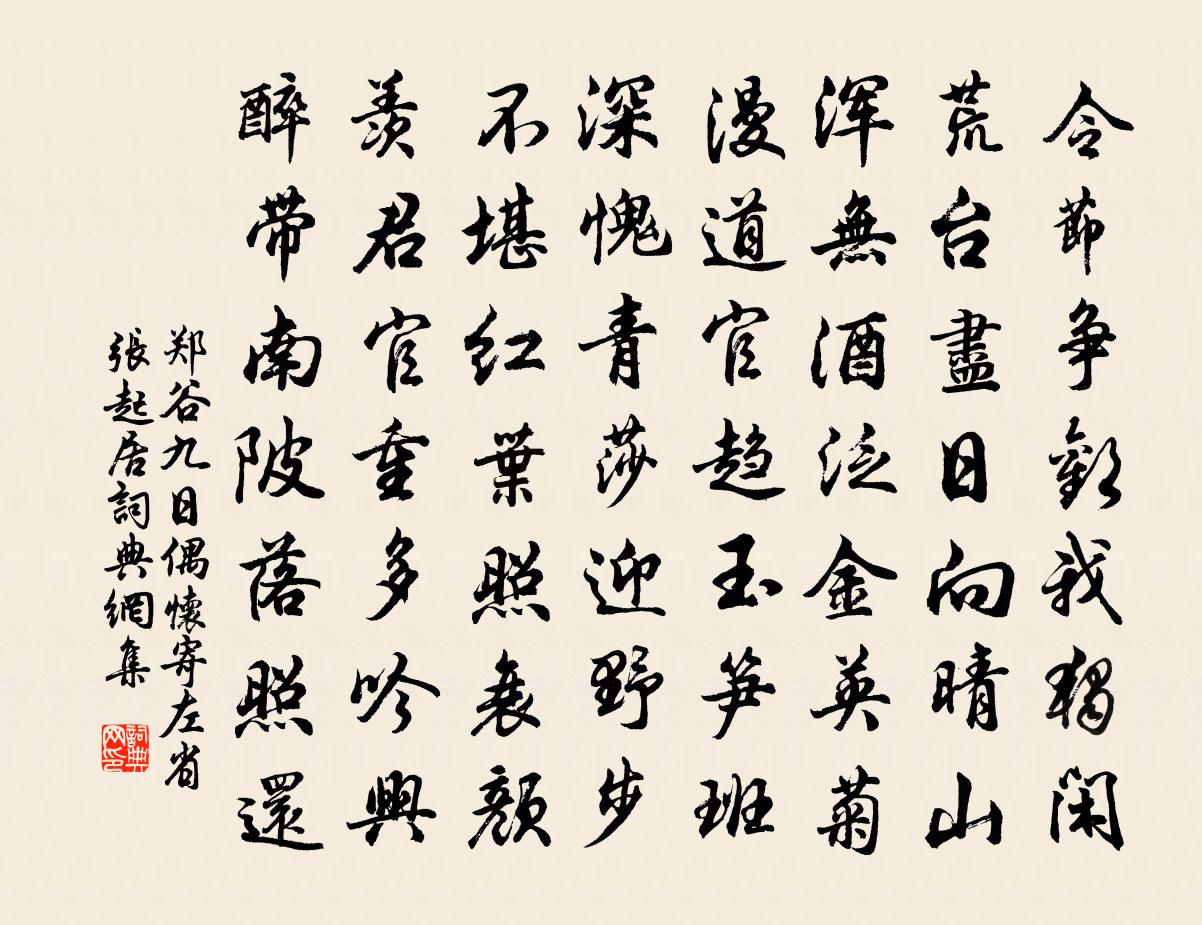 令節争歡我獨閑
荒台盡日向晴山
浑無酒泛金英菊
漫道官趋玉笋班
深愧青莎迎野步
不堪红葉照衰顔
羡君官重多吟興
醉带南陂落照還
郑谷九日偶懷寄左省
張起居詞典網集
詞典网印